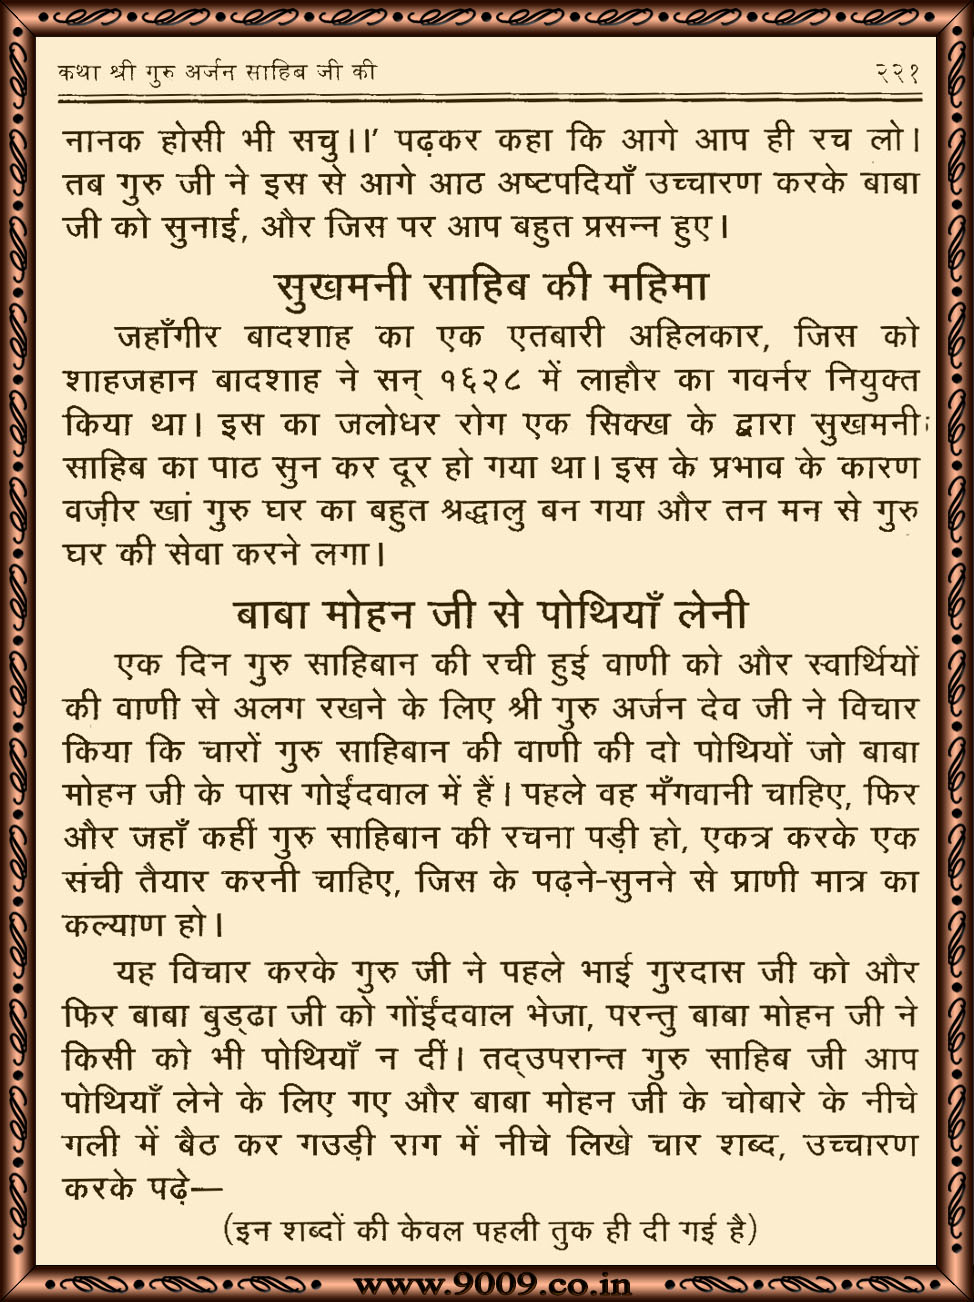 कथा श्री गुरु अर्जन साहिब जी की २२१
नानक होसी भी सचु।।’ पढ़कर कहा कि आगे आप ही रच लो।
तब गुरु जी ने इस से आगे आठ अष्टपदियाँ उच्चारण करके बाबा
जी को सुनाई, और जिस पर आप बहुत प्रसन्न हुए।
सुखमनी साहिब की महिमा
जहाँगीर बादशाह का एक एतबारी अहिलकार, जिस को
शाहजहान बादशाह ने सन् १६२८ में लाहौर का गवर्नर नियुक्त
किया था। इस का जलोधर रोग एक सिक्ख के द्वारा सुखमनी
साहिब का पाठ सुन कर दूर हो गया था। इस के प्रभाव के कारण
वज़ीर खां गुरु घर का बहुत श्रद्धालु बन गया और तन मन से गुरु
घर की सेवा करने लगा।
बाबा मोहन जी से पोथियाँ लेनी
एक दिन गुरु साहिबान की रची हुई वाणी को और स्वार्थियों
की वाणी से अलग रखने के लिए श्री गुरु अर्जन देव जी ने विचार
किया कि चारों गुरु साहिबान की वाणी की दो पोथियों जो बाबा
मोहन जी के पास गोईंदवाल में हैं। पहले वह मँगवानी चाहिए, फिर
और जहाँ कहीं गुरु साहिबान की रचना पड़ी हो, एकत्र करके एक
संची तैयार करनी चाहिए, जिस के पढ़ने-सुनने से प्राणी मात्र का
कल्याण हो।
यह विचार करके गुरु जी ने पहले भाई गुरदास जी को और
फिर बाबा बुड्ढा जी को गोंईंदवाल भेजा, परन्तु बाबा मोहन जी ने
किसी को भी पोथियाँ न दीं। तद्उपरान्त गुरु साहिब जी आप
पोथियाँ लेने के लिए गए और बाबा मोहन जी के चोबारे के नीचे
गली में बैठ कर गउड़ी राग में नीचे लिखे चार शब्द, उच्चारण
करके पढ़े—
(इन शब्दों की केवल पहली तुक ही दी गई है)
www.9009.co.in